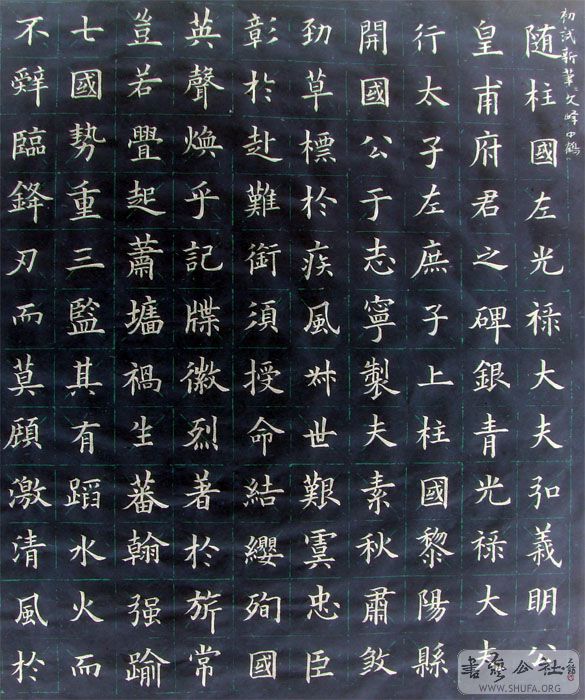 随柱國左光禄大夫弘義明公
皇甫府君之碑銀青光禄大夫
行太子左庶子上柱國黎陽縣
開國公于志寧製夫素秋肅煞
劲草標於疾風叔世艱虞忠臣
彰於赴難銜須授命結纓殉國
英聲焕乎記牒徽烈著於旂常
豈若舋起蕭墻禍生蕃翰强踰
七國勢重三監其有蹈水火而
不辤臨鋒刃而莫顧激清風於
初试新筆
書藝公社
WWW.SHUFA.ORG